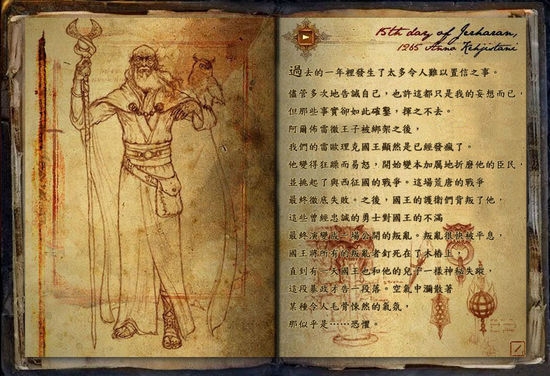 15th day of Jerharan,
1265 Anno Kehjistani
過去的一年裡發生了太多令人難以置信之事。
儘管多次地告誡自己，也許這都只是我的妄想而已，
但那些事實卻如此確鑿，揮之不去。
阿爾佈雷徹王子被綁架之後，
我們的雷歐理克國王顯然是已經發瘋了。
他變得狂躁而易怒，開始變本加厲地折磨他的臣民，
並挑起了與西征國的戰爭。這場荒唐的戰爭
最終徹底失敗。之後，國王的護衛們背叛了他，
這些曾經忠誠的勇士對國王的不滿
最終演變成一場公開的叛亂。叛亂很快被平息，
國王將所有的叛亂者釘死在了木樁上，
直到有一天國王也和他的兒子一樣神秘失蹤，
這段暴政才告一段落。空氣中瀰散著
某種令人毛骨悚然的氣氛，
那似乎是……恐懼。